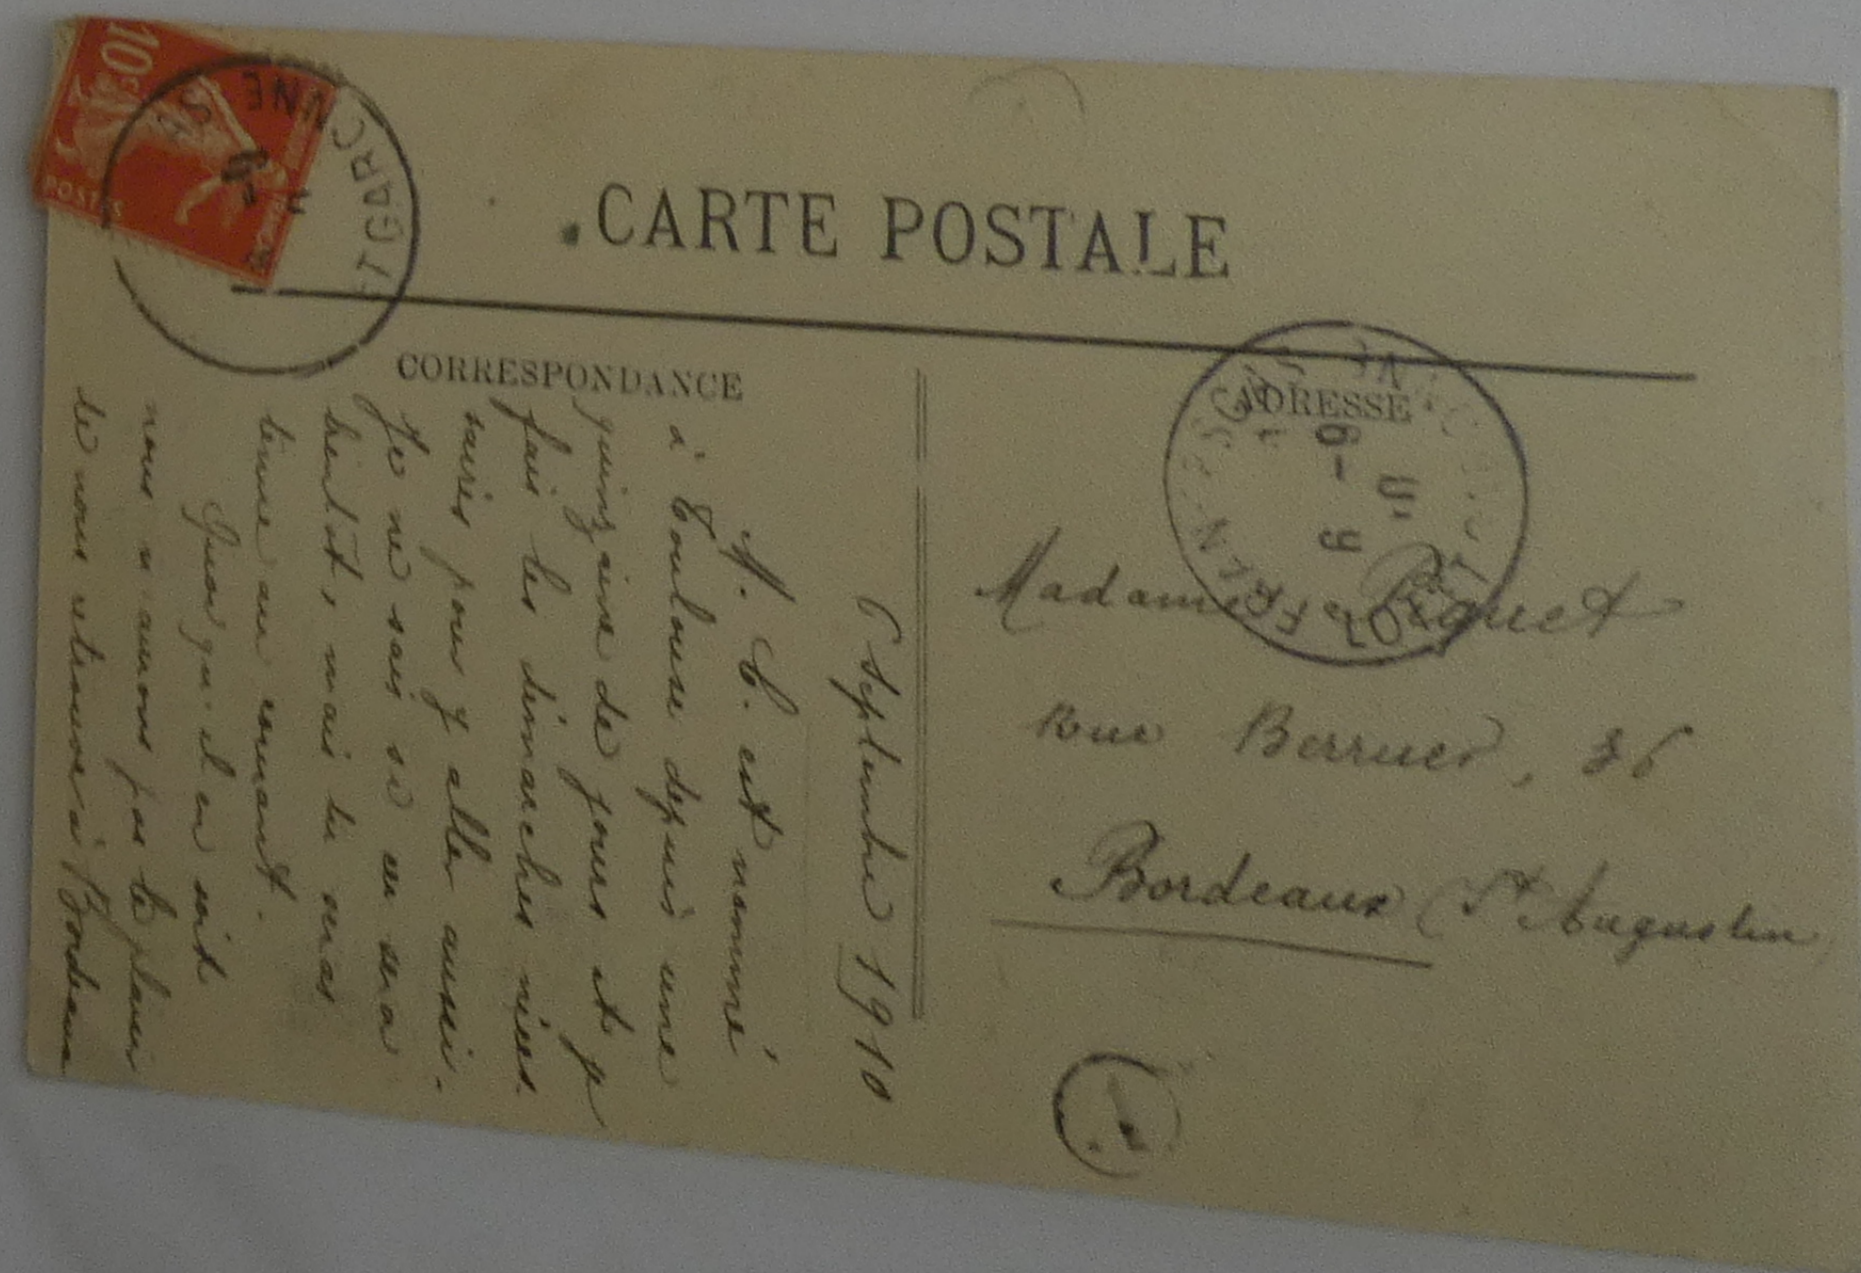 10c
POSTES
CARTE POSTALE
CORRESPONDANCE
ADRESSE
6 Septembre 1910
M. C. est nommé
à Toulouse depuis une
quinzaine de jours et je
fais les démarches néces-
saires pour y aller aussi.
Je ne sais si ce sera
bientôt, mais tu seras
tenue au courant.
Quoi qu'il en soit
nous n'aurons pas le plaisir
de nous retrouver à Bordeaux
Madame Piquet
Rue Berruer, 36
Bordeaux (St Augustin)